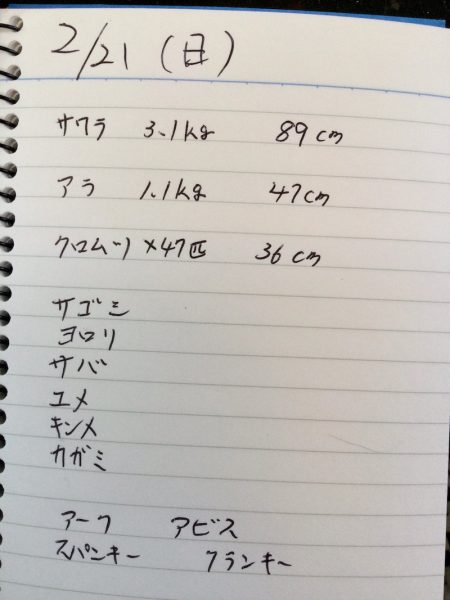 2/21 (日)
サワラ 3.1kg 89cm
アラ 1.1kg 47cm
クロムツ×47匹 36cm
サゴシ
ヨロリ
サバ
ユメ
キンメ
カガミ
アーク アビス
スパンキー フランキー